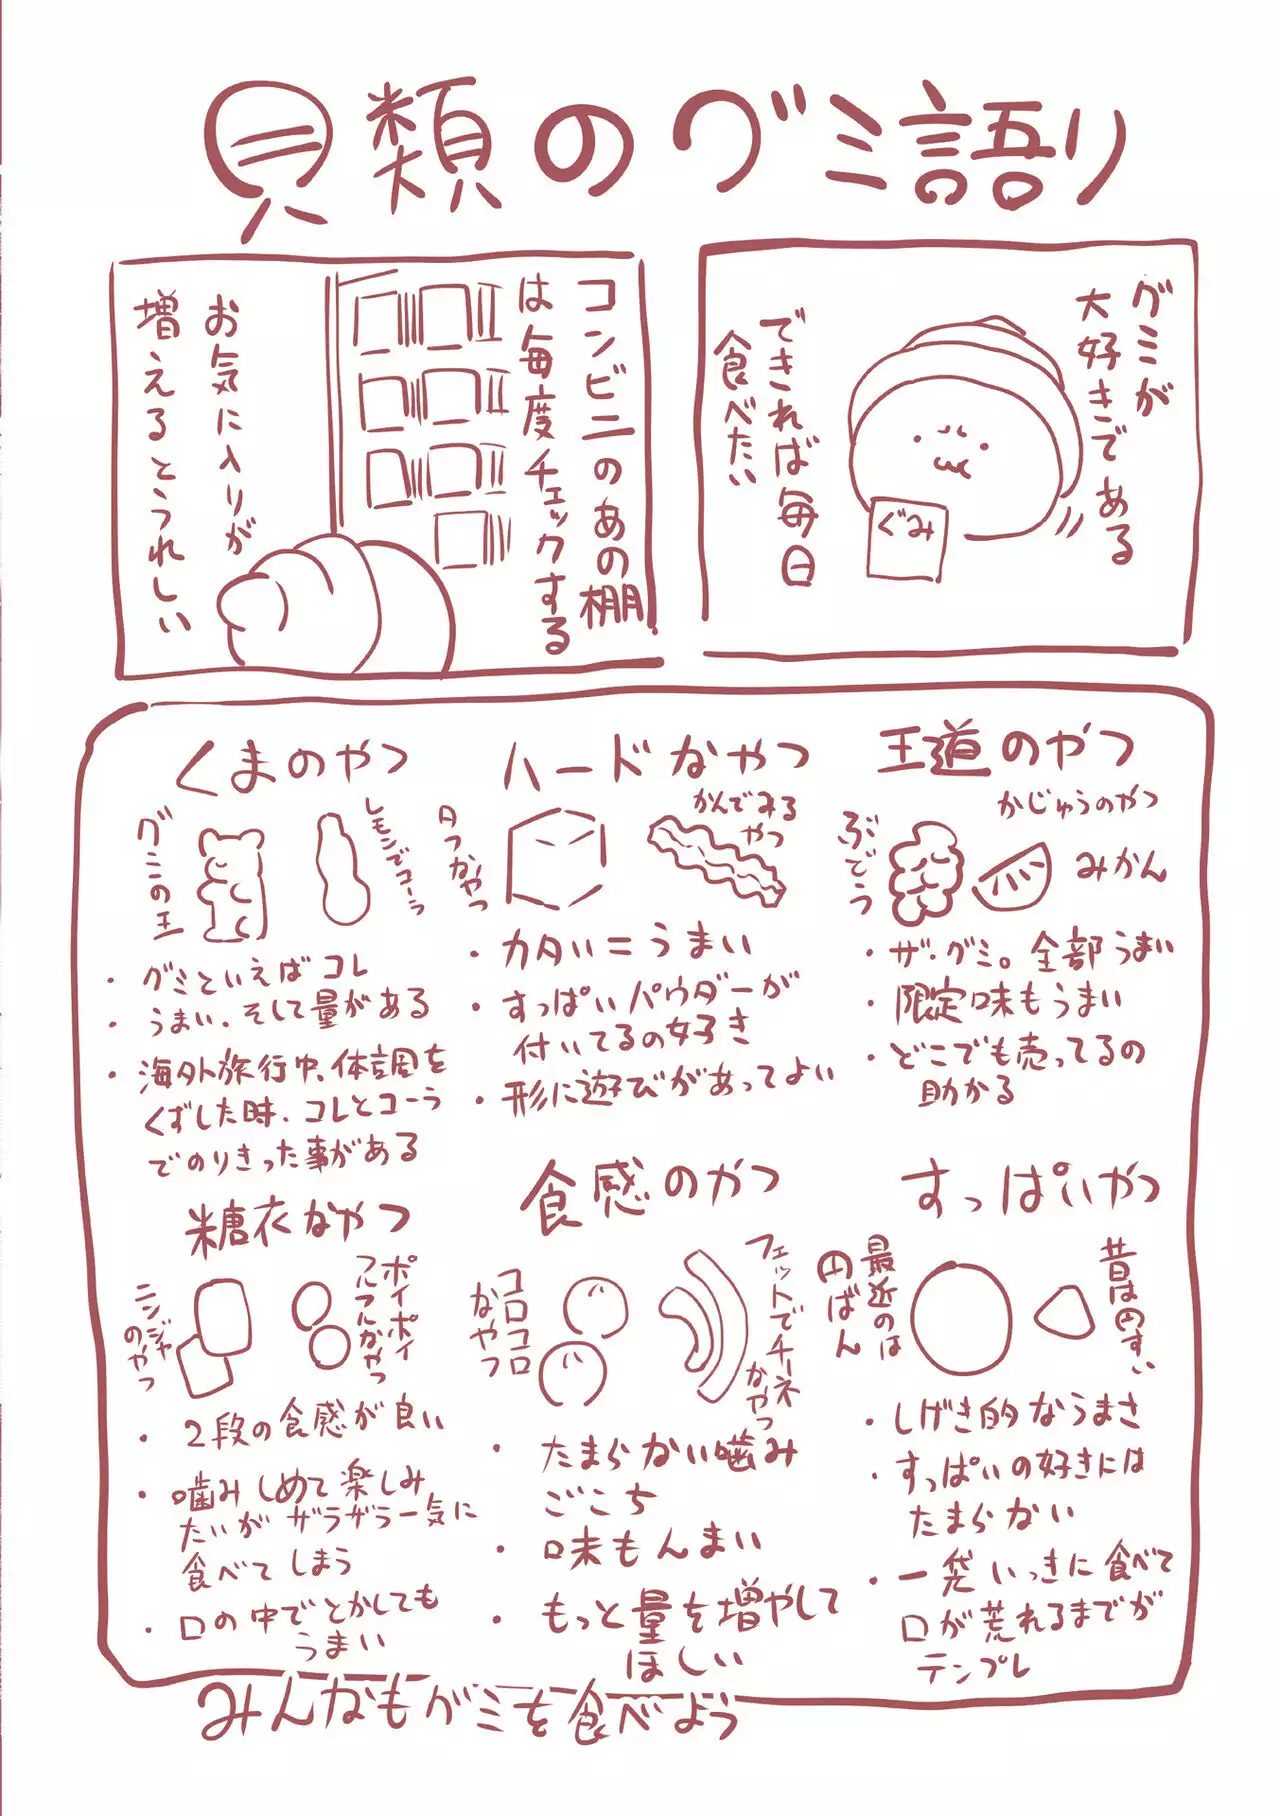 貝類のグミ語り
グミが
大好きである
できれば毎日
食べたい
ぐみ
コンビニのあの棚
は毎度チェックする
お気に入りが
増えるとうれしい
王道のやつ
かじゅうのやつ
ぶどう
みかん
・ザ・グミ。全部うまい
・限定味もうまい
・どこでも売ってるの
助かる
ハードなやつ
かんでみる
やつ
タフなやつ
・カタい=うまい
・すっぱいパウダーが
付いてるの好き
・形に遊びがあってよい
くまのやつ
グミの王
レモンでコーラ
・グミといえばコレ
・うまい、そして量がある
・海外旅行中、体調を
くずした時、コレとコーラ
でのりきった事がある
すっぱいやつ
昔は円すい
最近のは
円ばん
・しげき的なうまさ
・すっぱいの好きには
たまらない
・一発いっきに食べて
口が荒れるまでが
テンプレ
食感のやつ
フェットでチーネ
なやつ
コロコロ
なやつ
・たまらない噛み
ごこち
・味もんまい
・もっと量を増やして
ほしい
糖衣なやつ
ポイポイ
フルフルなやつ
ニンジャ
のやつ
・2段の食感が良い
・噛みしめて楽しみ
たいがザラザラ一気に
食べてしまう
・口の中でとかしても
うまい
みんなもグミを食べよう